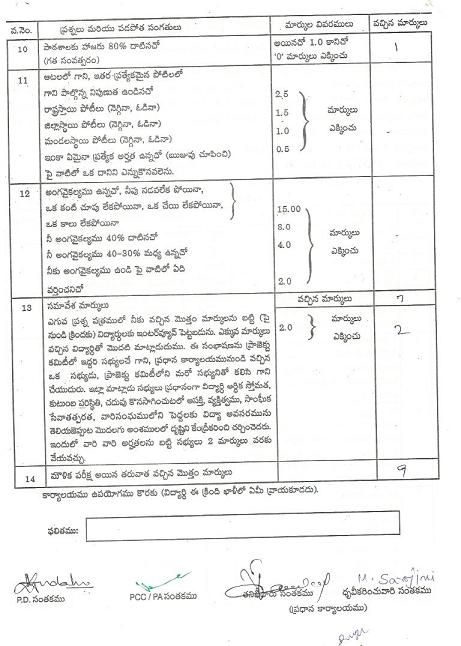 వ.నెం. ప్రశ్నలు మరియు పడపోత సంగతులు మార్కుల వివరములు వచ్చిన మార్కులు
10 పాఠశాలకు హాజరు 80% దాటినచో అయినచో 1.0 కానిచో 1
(గత సంవత్సరం) '0' మార్కులు ఎక్కించు
11 ఆటలలో గాని, ఇతర ప్రత్యేకమైన పోటీలలో
గాని పాల్గొన్న నిపుణత ఉండినచో 2.5
రాష్ట్రస్థాయి పోటీలు (నెగ్గినా, ఓడినా) 1.5 మార్కులు
జిల్లాస్థాయి పోటీలు (నెగ్గినా, ఓడినా) 1.0 ఎక్కించు
మండలస్థాయి పోటీలు (నెగ్గినా, ఓడినా) 0.5
ఇంకా ఏమైనా ప్రత్యేక అర్హత ఉన్నచో (ఋజువు చూపించి)
పై వాటిలో ఒక దానిని ఎన్నుకొనవలెను.
12 అంగవైకల్యము ఉన్నచో, నీవు నడవలేక పోయినా,
ఒక కంటి చూపు లేకపోయినా, ఒక చేయి లేకపోయినా, 15.00
ఒక కాలు లేకపోయినా 8.0 మార్కులు
నీ అంగవైకల్యము 40% దాటినచో 4.0 ఎక్కించు
నీ అంగవైకల్యము 40-30% మధ్య ఉన్నచో
నీకు అంగవైకల్యము ఉండి పై వాటిలో ఏది 2.0
వర్తించనిచో
13 సమావేశ మార్కులు వచ్చిన మార్కులు 7
ఎగువ ప్రశ్న పత్రములో నీకు వచ్చిన మొత్తం మార్కులను బట్టి (పై
నుండి క్రిందకు) విద్యార్థులకు ఇంటర్వ్యూన్ పెట్టబడును. ఎక్కువ మార్కులు 2.0 మార్కులు 2
వచ్చిన విద్యార్థితో మొదటి మాట్లాడుదుము. ఈ సంభాషణను ప్రాజెక్టు ఎక్కించు
కమిటీలో ఇద్దరి సభ్యులచే గాని, ప్రధాన కార్యాలయమునుండి వచ్చిన
ఒక సభ్యుడు, ప్రాజెక్టు కమిటీలోని మరో సభ్యునితో కలిసి గాని
చేయుదురు. ఇట్లా మాట్లాడు సభ్యులు ప్రధానంగా విద్యార్థి ఆర్థిక స్తోమత,
కుటుంబ పరిస్థితి, చదువు కొనసాగించుటలో ఆసక్తి, వ్యక్తిత్వము, సాంఘిక
సేవాతత్పరత, వారిసంఘములోని పెద్దలకు విద్యా అవసరమును
తెలియజెప్పుట మొదలగు అంశములలో దృష్టిని కేంద్రీకరించి చర్చించెదరు.
ఇందులో వారి వారి అర్హతలను బట్టి సభ్యులు 2 మార్కులు వరకు
వేయవచ్చు.
14 మౌళిక పరీక్ష అయిన తరువాత వచ్చిన మొత్తం మార్కులు 9
కార్యాలయము ఉపయోగము కొరకు (విద్యార్థి ఈ క్రింది ఖాళీలో ఏమీ వ్రాయకూడదు).
ఫలితము:
M. Sarojini
P.D. సంతకము PCC / PA సంతకము తనిఖీదారు సంతకము ధృవీకరించువారి సంతకము
(ప్రధాన కార్యాలయము)